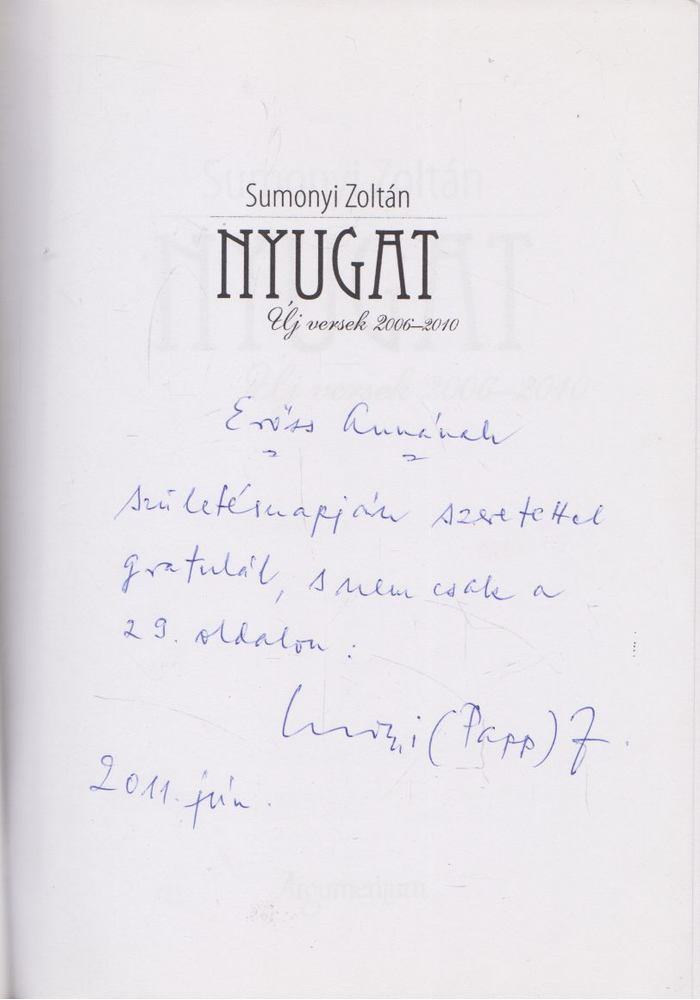 Sumonyi Zoltán
NYUGAT
Új versek 2006–2010
Erőss Annának
születésnapján szeretettel
gratulál, s nem csak a
29. oldalon:
(Papp) Z.
2011. jún.